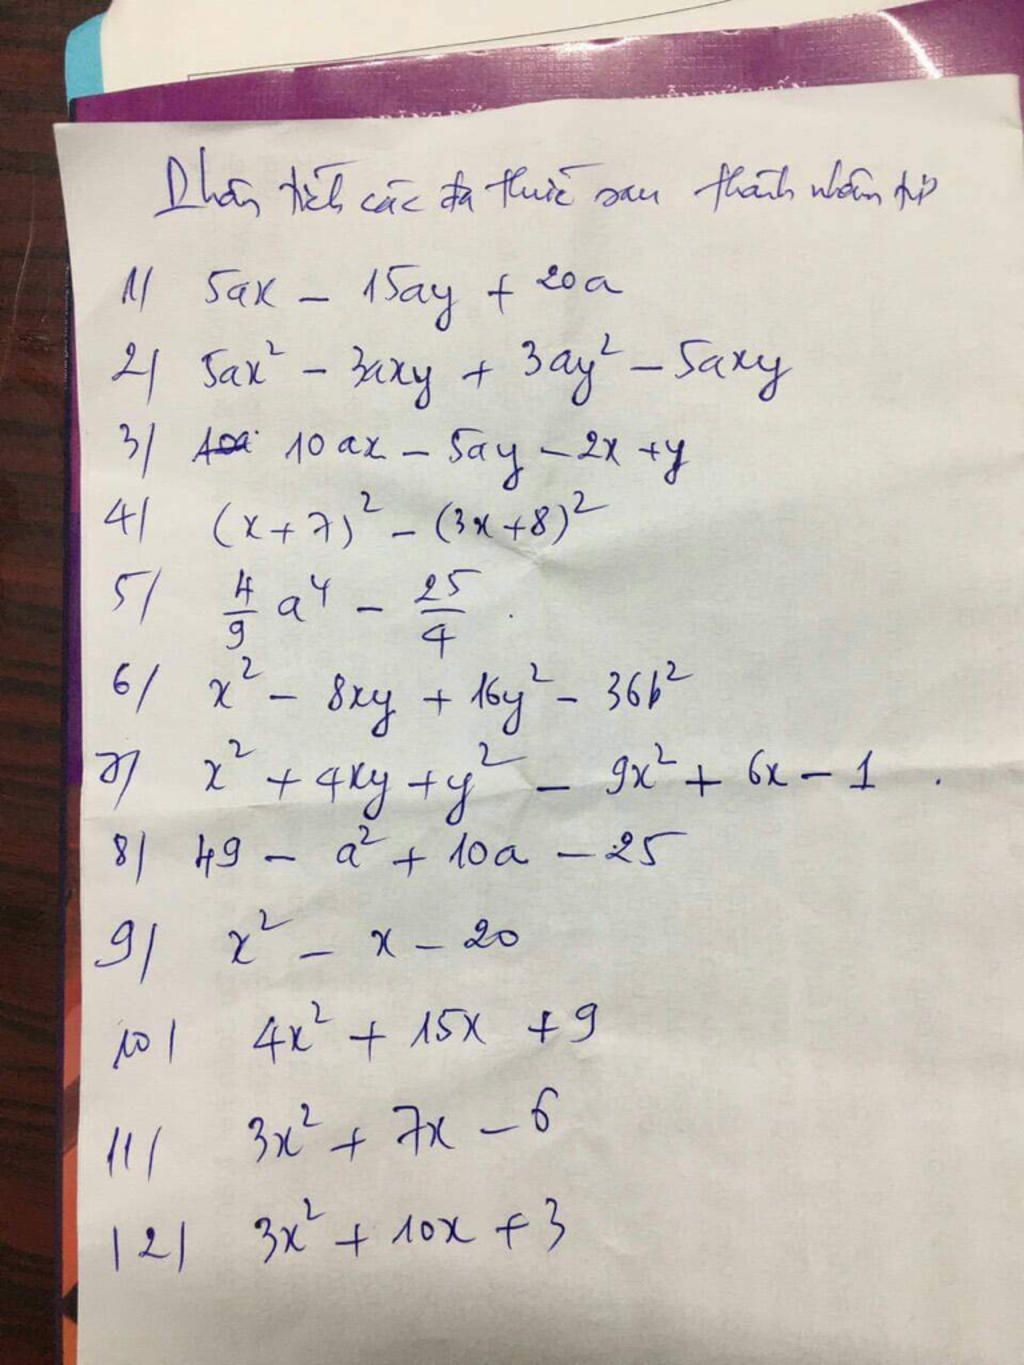 Phân tích các đa thức sau thành nhân tử
1/ 5ax - 15ay + 20a
2/ 5ax² - 3axy + 3ay² - 5axy
3/ 10ax - 5ay - 2x + y
4/ (x + 7)² - (3x + 8)²
5/ 4/9 a⁴ - 25/4
6/ x² - 8xy + 16y² - 36b²
7/ x² + 4xy + y² - 9x² + 6x - 1
8/ 49 - a² + 10a - 25
9/ x² - x - 20
10/ 4x² + 15x + 9
11/ 3x² + 7x - 6
12/ 3x² + 10x + 3